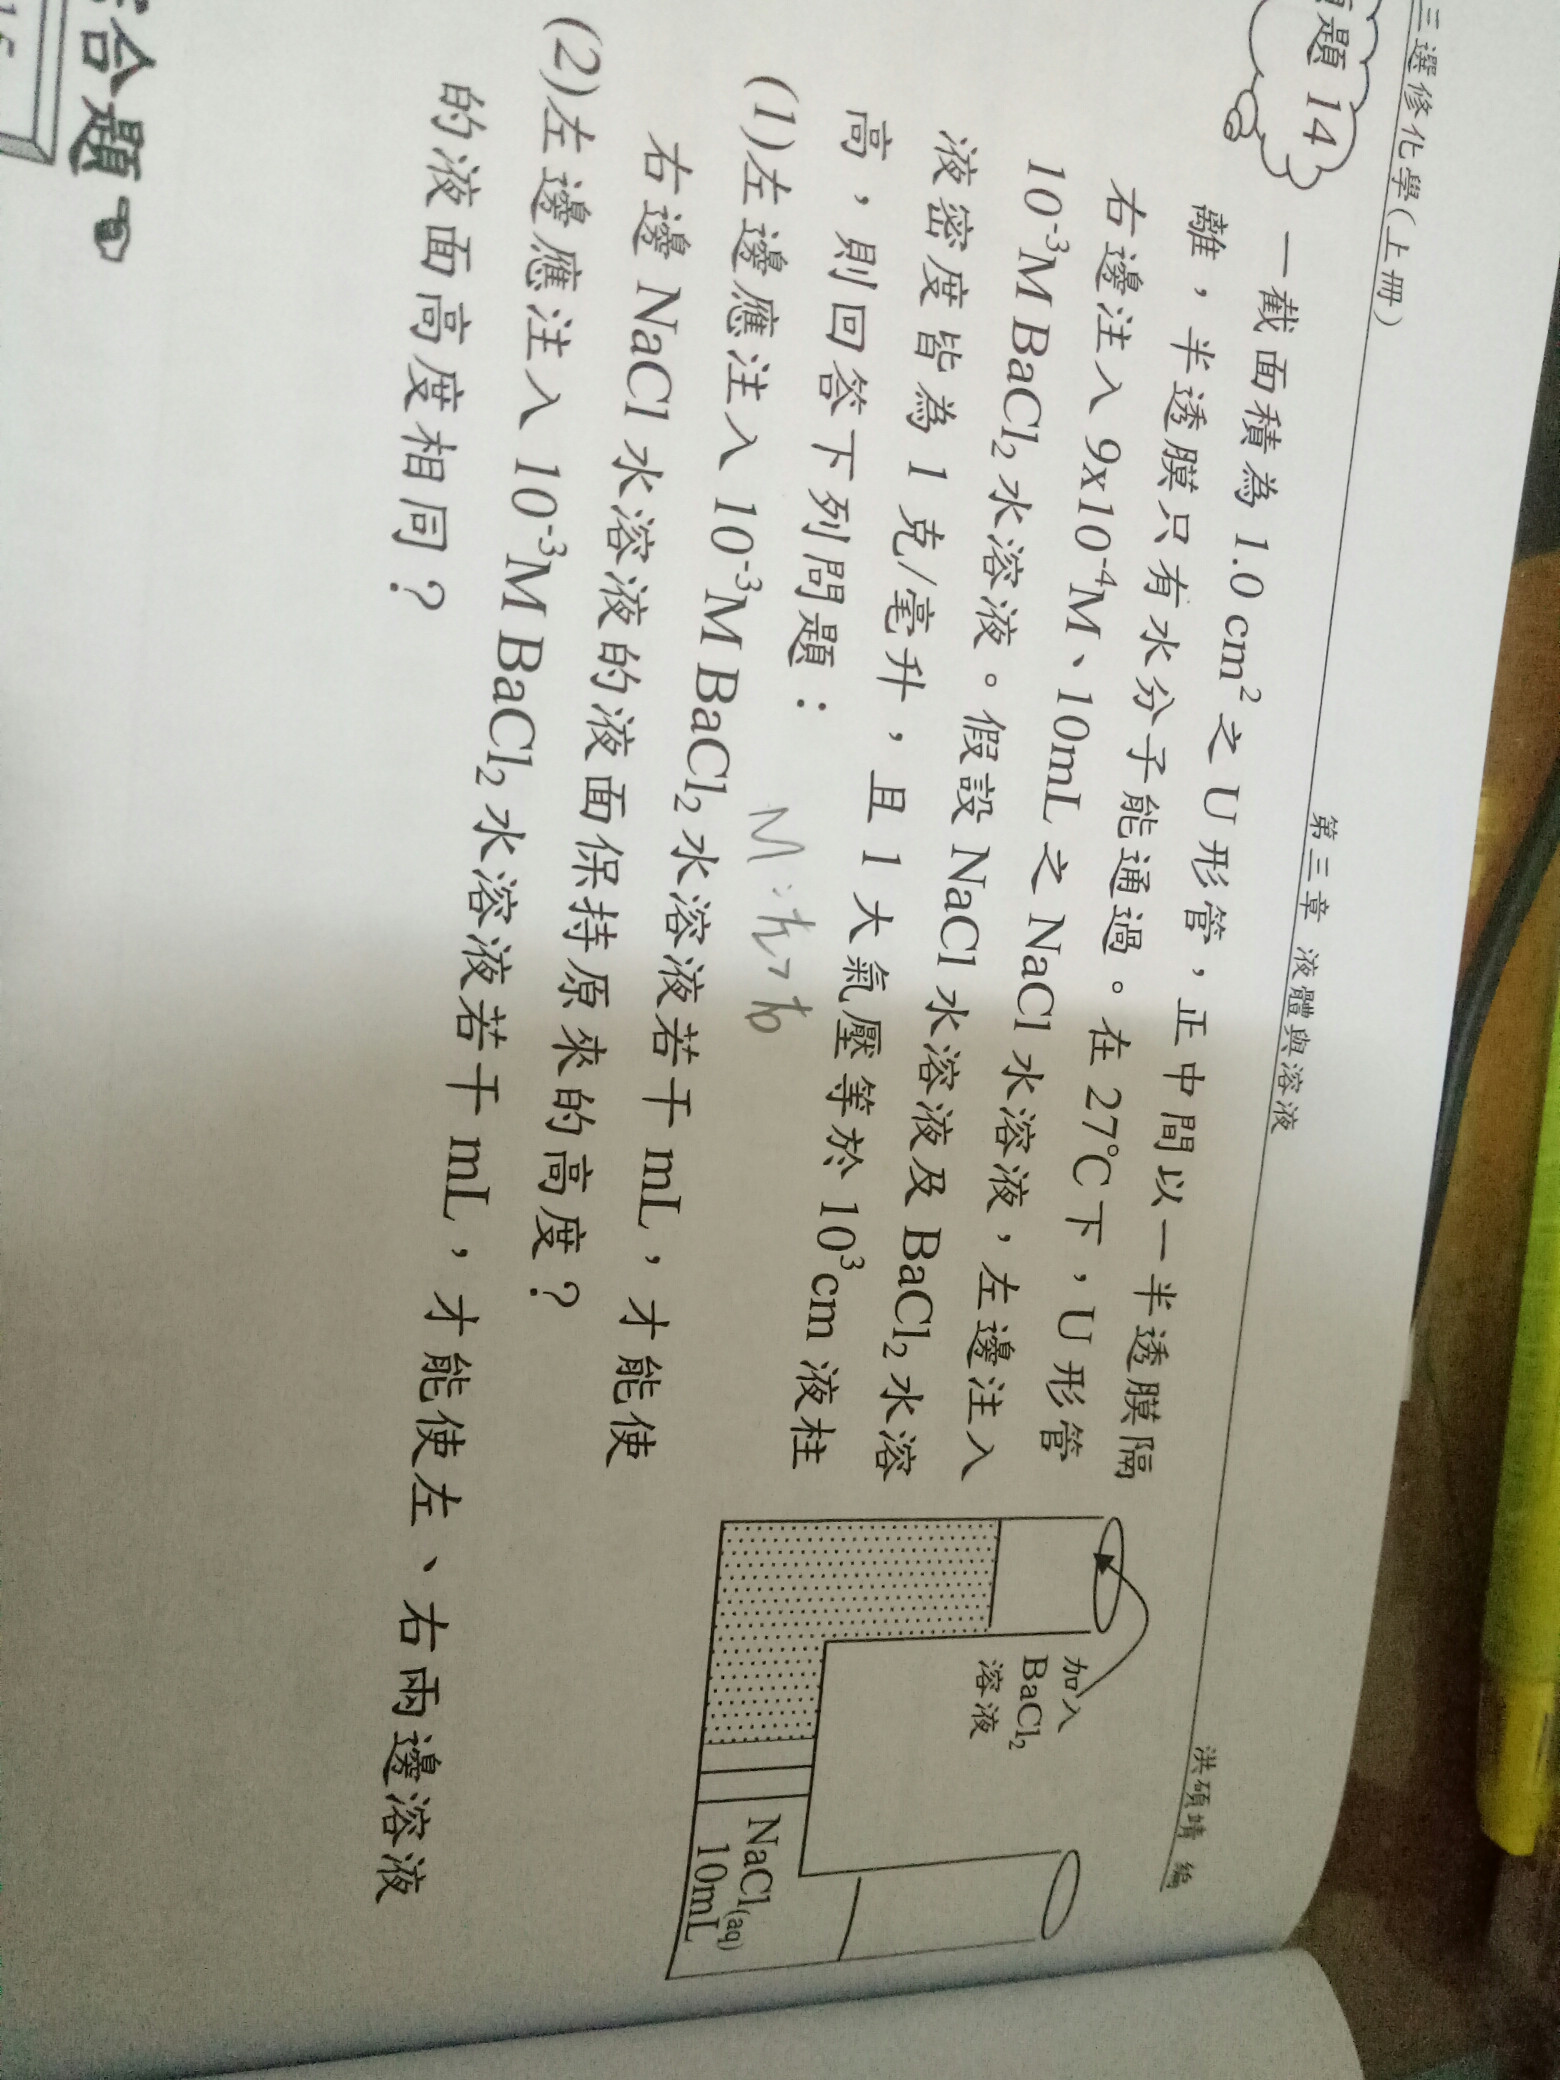 三選修化學(上冊)
第三章 液體與溶液
洪碩靖 編
題 14
一截面積為 1.0 cm² 之 U 形管，正中間以一半透膜隔
離，半透膜只有水分子能通過。在 27℃下，U 形管
右邊注入 9x10⁻⁴M、10mL 之 NaCl 水溶液，左邊注入
10⁻³M BaCl₂ 水溶液。假設 NaCl 水溶液及 BaCl₂ 水溶
液密度皆為 1 克/毫升，且 1 大氣壓等於 10³cm 液柱
高，則回答下列問題：
(1)左邊應注入 10⁻³M BaCl₂ 水溶液若干 mL，才能使
右邊 NaCl 水溶液的液面保持原來的高度？
(2)左邊應注入 10⁻³M BaCl₂ 水溶液若干 mL，才能使左、右兩邊溶液
的液面高度相同？
加入
BaCl₂
溶液
NaCl(aq)
10mL
合題